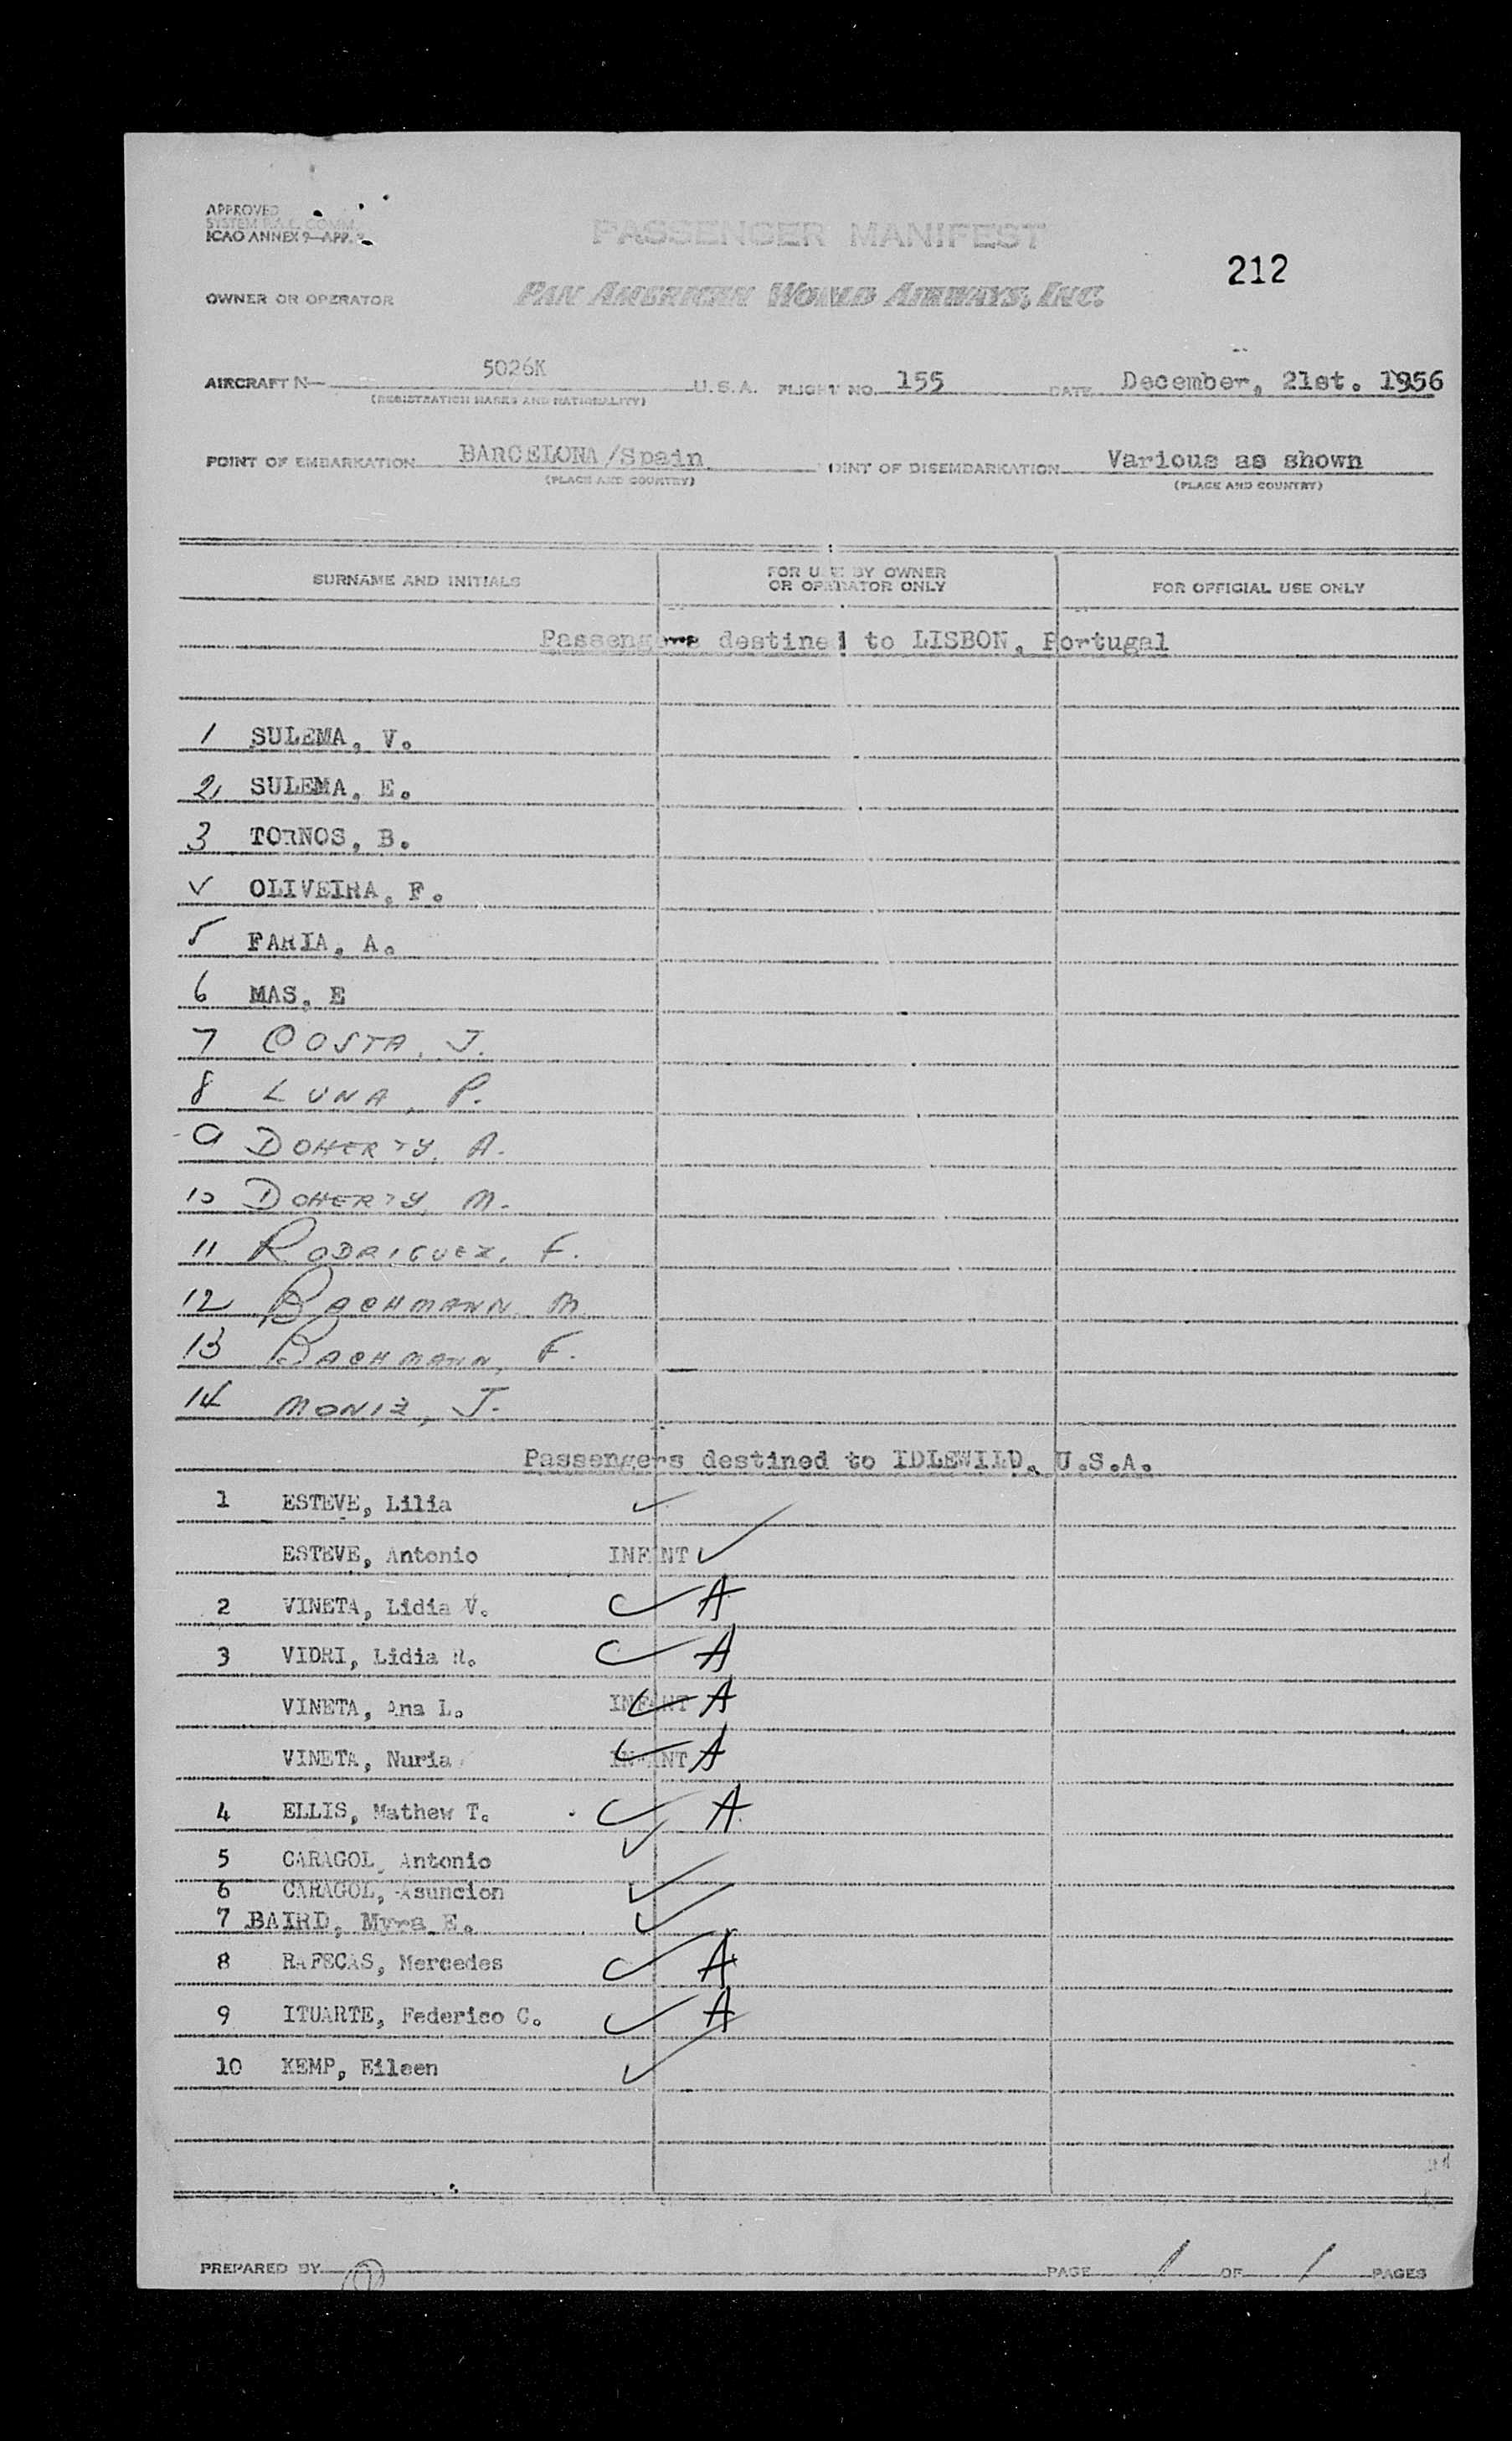 APPROVED
SYSTEM P.A.C. COMM.
ICAO ANNEX 9—APP.
PASSENGER MANIFEST
212
OWNER OR OPERATOR PAN AMERICAN WORLD AIRWAYS, INC.
AIRCRAFT N— 5026K U.S.A. FLIGHT NO. 155 DATE December, 21st. 1956
(REGISTRATION MARKS AND NATIONALITY)
POINT OF EMBARKATION BARCELONA/Spain OINT OF DISEMBARKATION Various as shown
(PLACE AND COUNTRY) (PLACE AND COUNTRY)
SURNAME AND INITIALS FOR USE BY OWNER OR OPERATOR ONLY FOR OFFICIAL USE ONLY
Passengers destined to LISBON, Portugal
1 SULEMA, V.
2 SULEMA, E.
3 TORNOS, B.
✓ OLIVEIRA, F.
5 FARIA, A.
6 MAS, E
7 COSTA, J.
8 LUNA, P.
9 DOHERTY, A.
10 DOHERTY, M.
11 RODRIGUEZ, F.
12 BACHMANN, M.
13 BACHMANN, F.
14 MONIZ, J.
Passengers destined to IDLEWILD, U.S.A.
1 ESTEVE, Lilia ✓
ESTEVE, Antonio INFANT ✓
2 VINETA, Lidia V. ✓ A
3 VIDRI, Lidia R. ✓ A
VINETA, Ana L. INFANT ✓ A
VINETA, Nuria INFANT ✓ A
4 ELLIS, Mathew T. ✓ A
5 CARAGOL, Antonio ✓
6 CARAGOL, Asuncion ✓
7 BAIRD, Myra E. ✓
8 RAFECAS, Mercedes ✓ A
9 ITUARTE, Federico C. ✓ A
10 KEMP, Eileen ✓
PREPARED BY PAGE 1 OF 1 PAGES